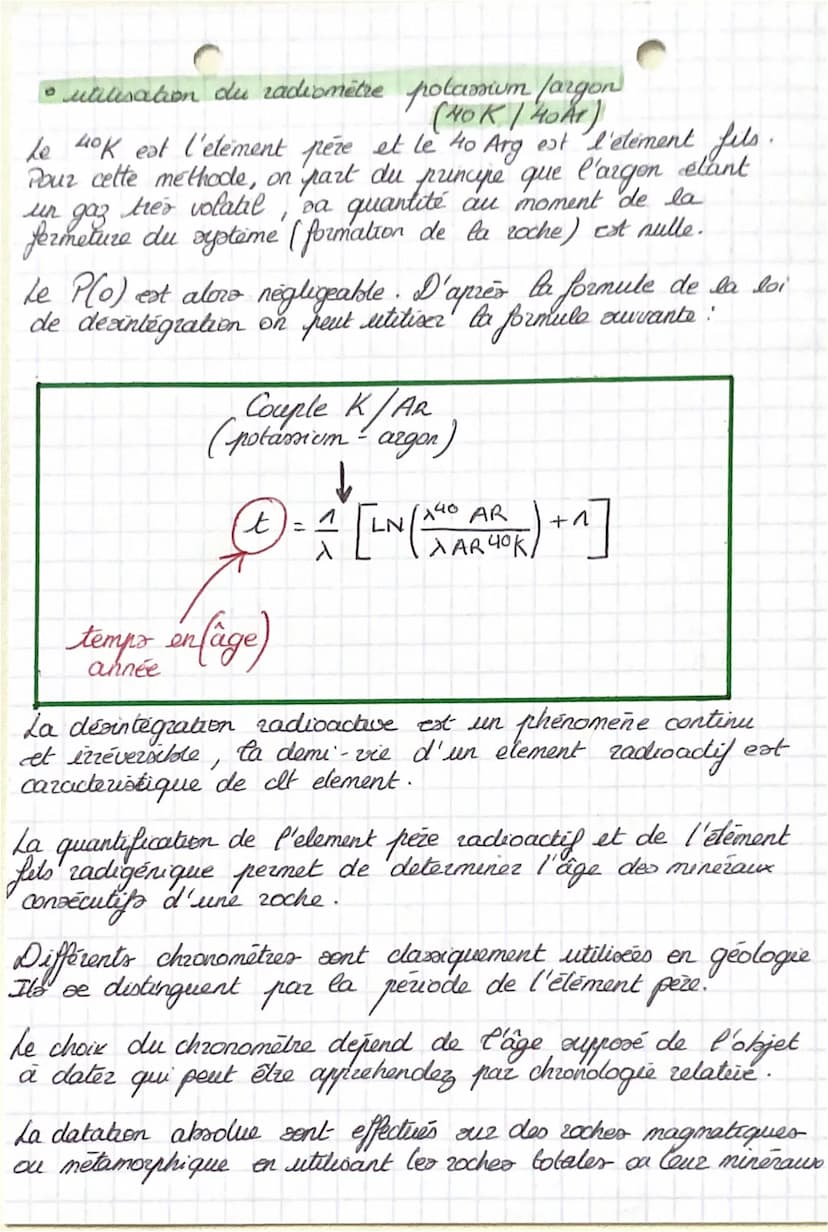 • utilisation du radiomètre potassium/argon
(40K/40Ar)
Le 40K est l'élément père et le 40 Arg est l'élément fils.
Pour cette méthode, on part du principe que l'argon étant
un gaz très volatil, sa quantité au moment de la
fermeture du système (formation de la roche) est nulle.
Le P(0) est alors négligeable. D'après la formule de la loi
de désintégration on peut utiliser la formule suivante :
Couple K/AR
(potassium - argon)
↓
t = 1/λ [LN(λ40 AR / λ AR 40K) + 1]
temps en (âge)
année
La désintégration radioactive est un phénomène continu
et irréversible, la demi-vie d'un element radioactif est
caracteristique de clt element.
La quantification de l'element père radioactif et de l'élément
fils radigénique permet de determiner l'âge des minéraux
consécutifs d'une roche.
Différents chronomètres sont classiquement utilisées en géologie
Ils se distinguent par la période de l'élément père.
Le choix du chronomètre dépend de l'âge supposé de l'objet
à dater qui peut être apprehendez par chronologie relative.
La datation absolue sont effectués sur des roches magmatiques
ou métamorphique en utilisant les roches totales ou leur minéraux